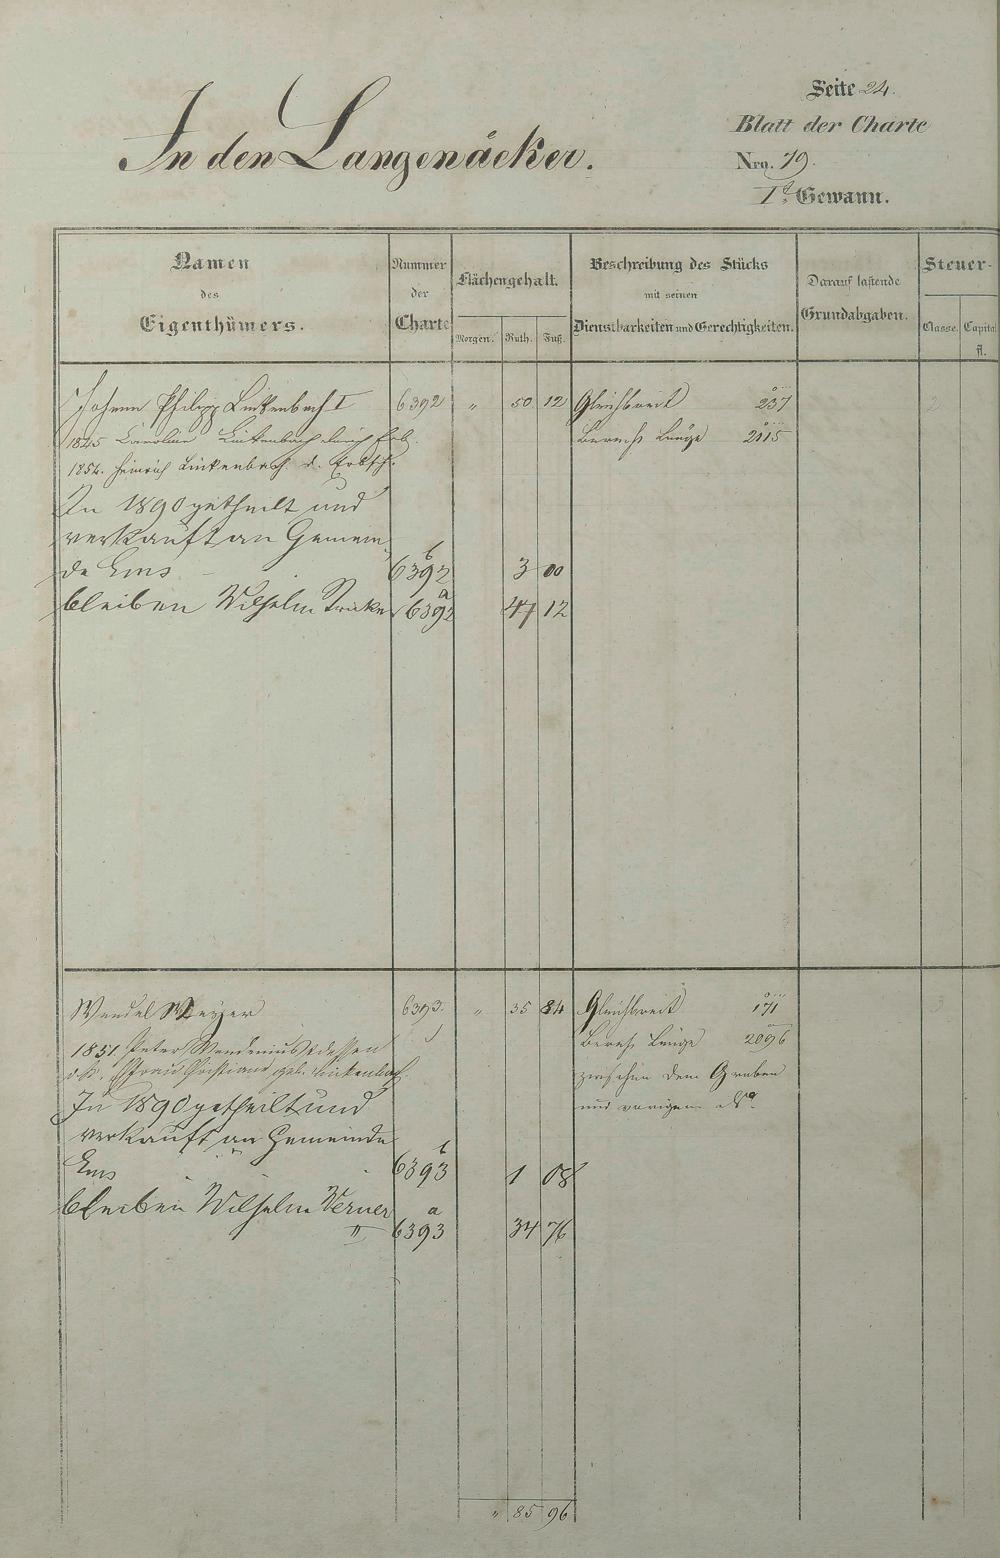 Seite 24.
In den Langenäcker.
Blatt der Charte
Nro. 79.
1t. Gewann.
Namen
des
Eigenthümers.
Nummer
der
Charte
Flächengehalt.
Morgen. Ruth. Fuß.
Beschreibung des Stücks
mit seinen
Dienstbarkeiten und Gerechtigkeiten.
Darauf lastende
Grundabgaben.
Steuer-
Classe. Capital
fl.
Johann Philipp Linkenbach I 6392 " 50 12 Gleichbreit 237 2
1845 Caroline Linkenbach durch Erb. Länge 2115
1854. Heinrich Linkenbach d. Erbsch.
In 1890 getheilt und
verkauft an Gemein
de Ems 6392 b 3 00
bleiben Wilhelm 6392 a 47 12
Wendel Meyer 6393. " 35 84 Gleichbreit 171 3
1851. Peter dessen Länge 2096
Frau Christiane geb. Linkenbach zwischen dem Graben
In 1890 getheilt und und vorigem
verkauft an Gemeinde
Ems 6393 b 1 08
bleiben Wilhelm Werner
II 6393 a 34 76
" 85 96